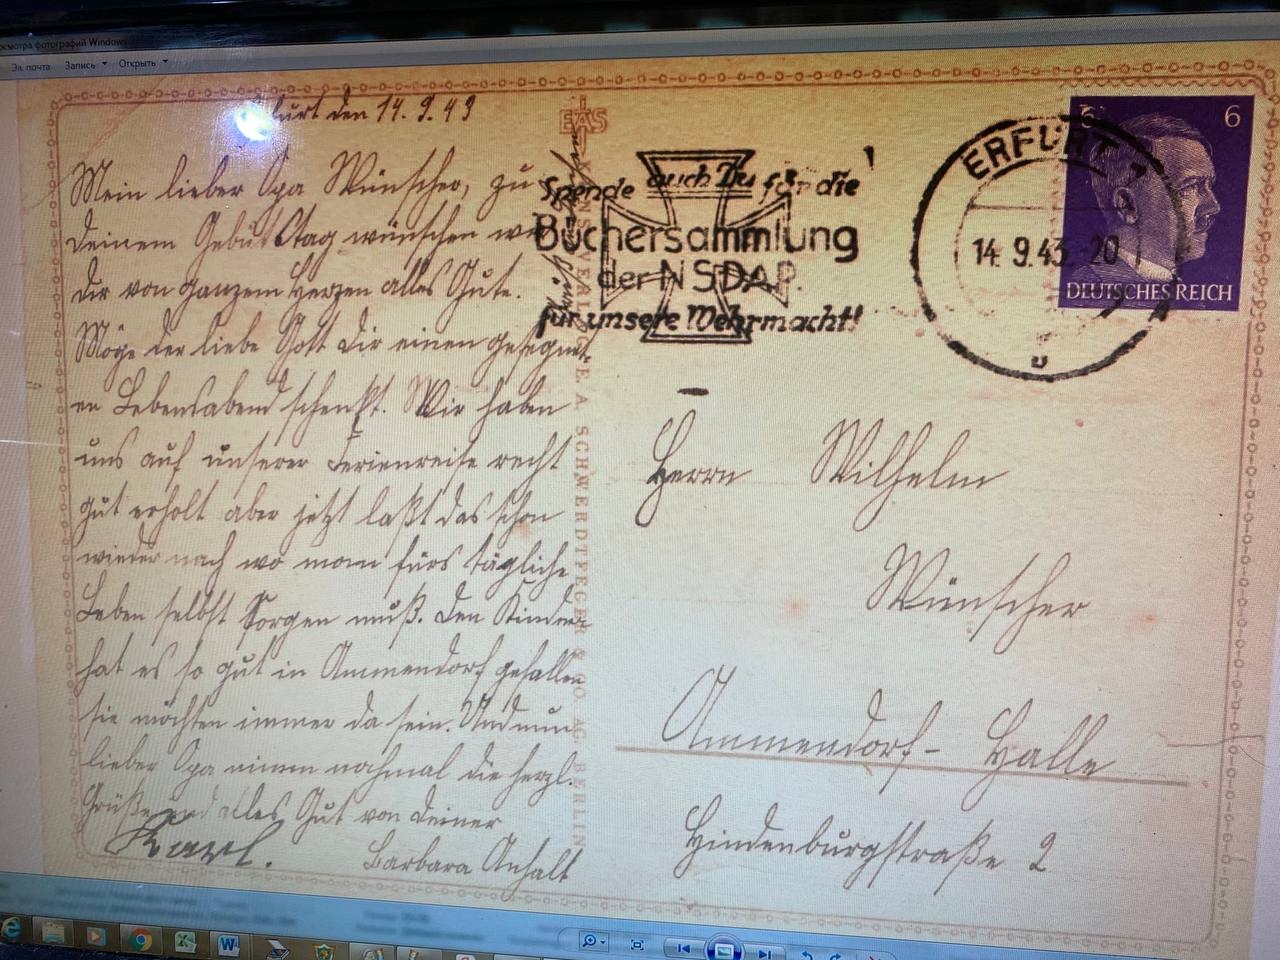 осмотра фотографий Windows
Эл. почта Запись Открыть
furt den 14. 9. 43
Mein lieber Opa Wünscher, zu
deinem Geburtstag wünschen wir
Dir von ganzem Herzen alles Gute.
Möge der liebe Gott dir einen gesegnet-
en Lebensabend schenkt. Wir haben
uns auf unserer Ferienreise recht
gut erholt aber jetzt laßt das schon
wieder nach wo man fürs tägliche
Leben selbst Sorgen muß. Den Kindern
hat es so gut in Ammendorf gefallen
sie möchten immer da sein. Und nun
lieber Opa nimm nochmal die herzl.
Grüße und alles Gut von deiner
Karl. Barbara Anhalt
EAS
KUNSTVERLAG E. A. SCHWERDTFEGER & CO. AG. BERLIN
Spende auch Du für die
Büchersammlung
der NSDAP.
für unsere Wehrmacht!
ERFURT 1
14. 9. 43. -20
6 6
DEUTSCHES REICH
Herrn Wilhelm
Wünscher
Ammendorf - Halle
Hindenburgstraße 2